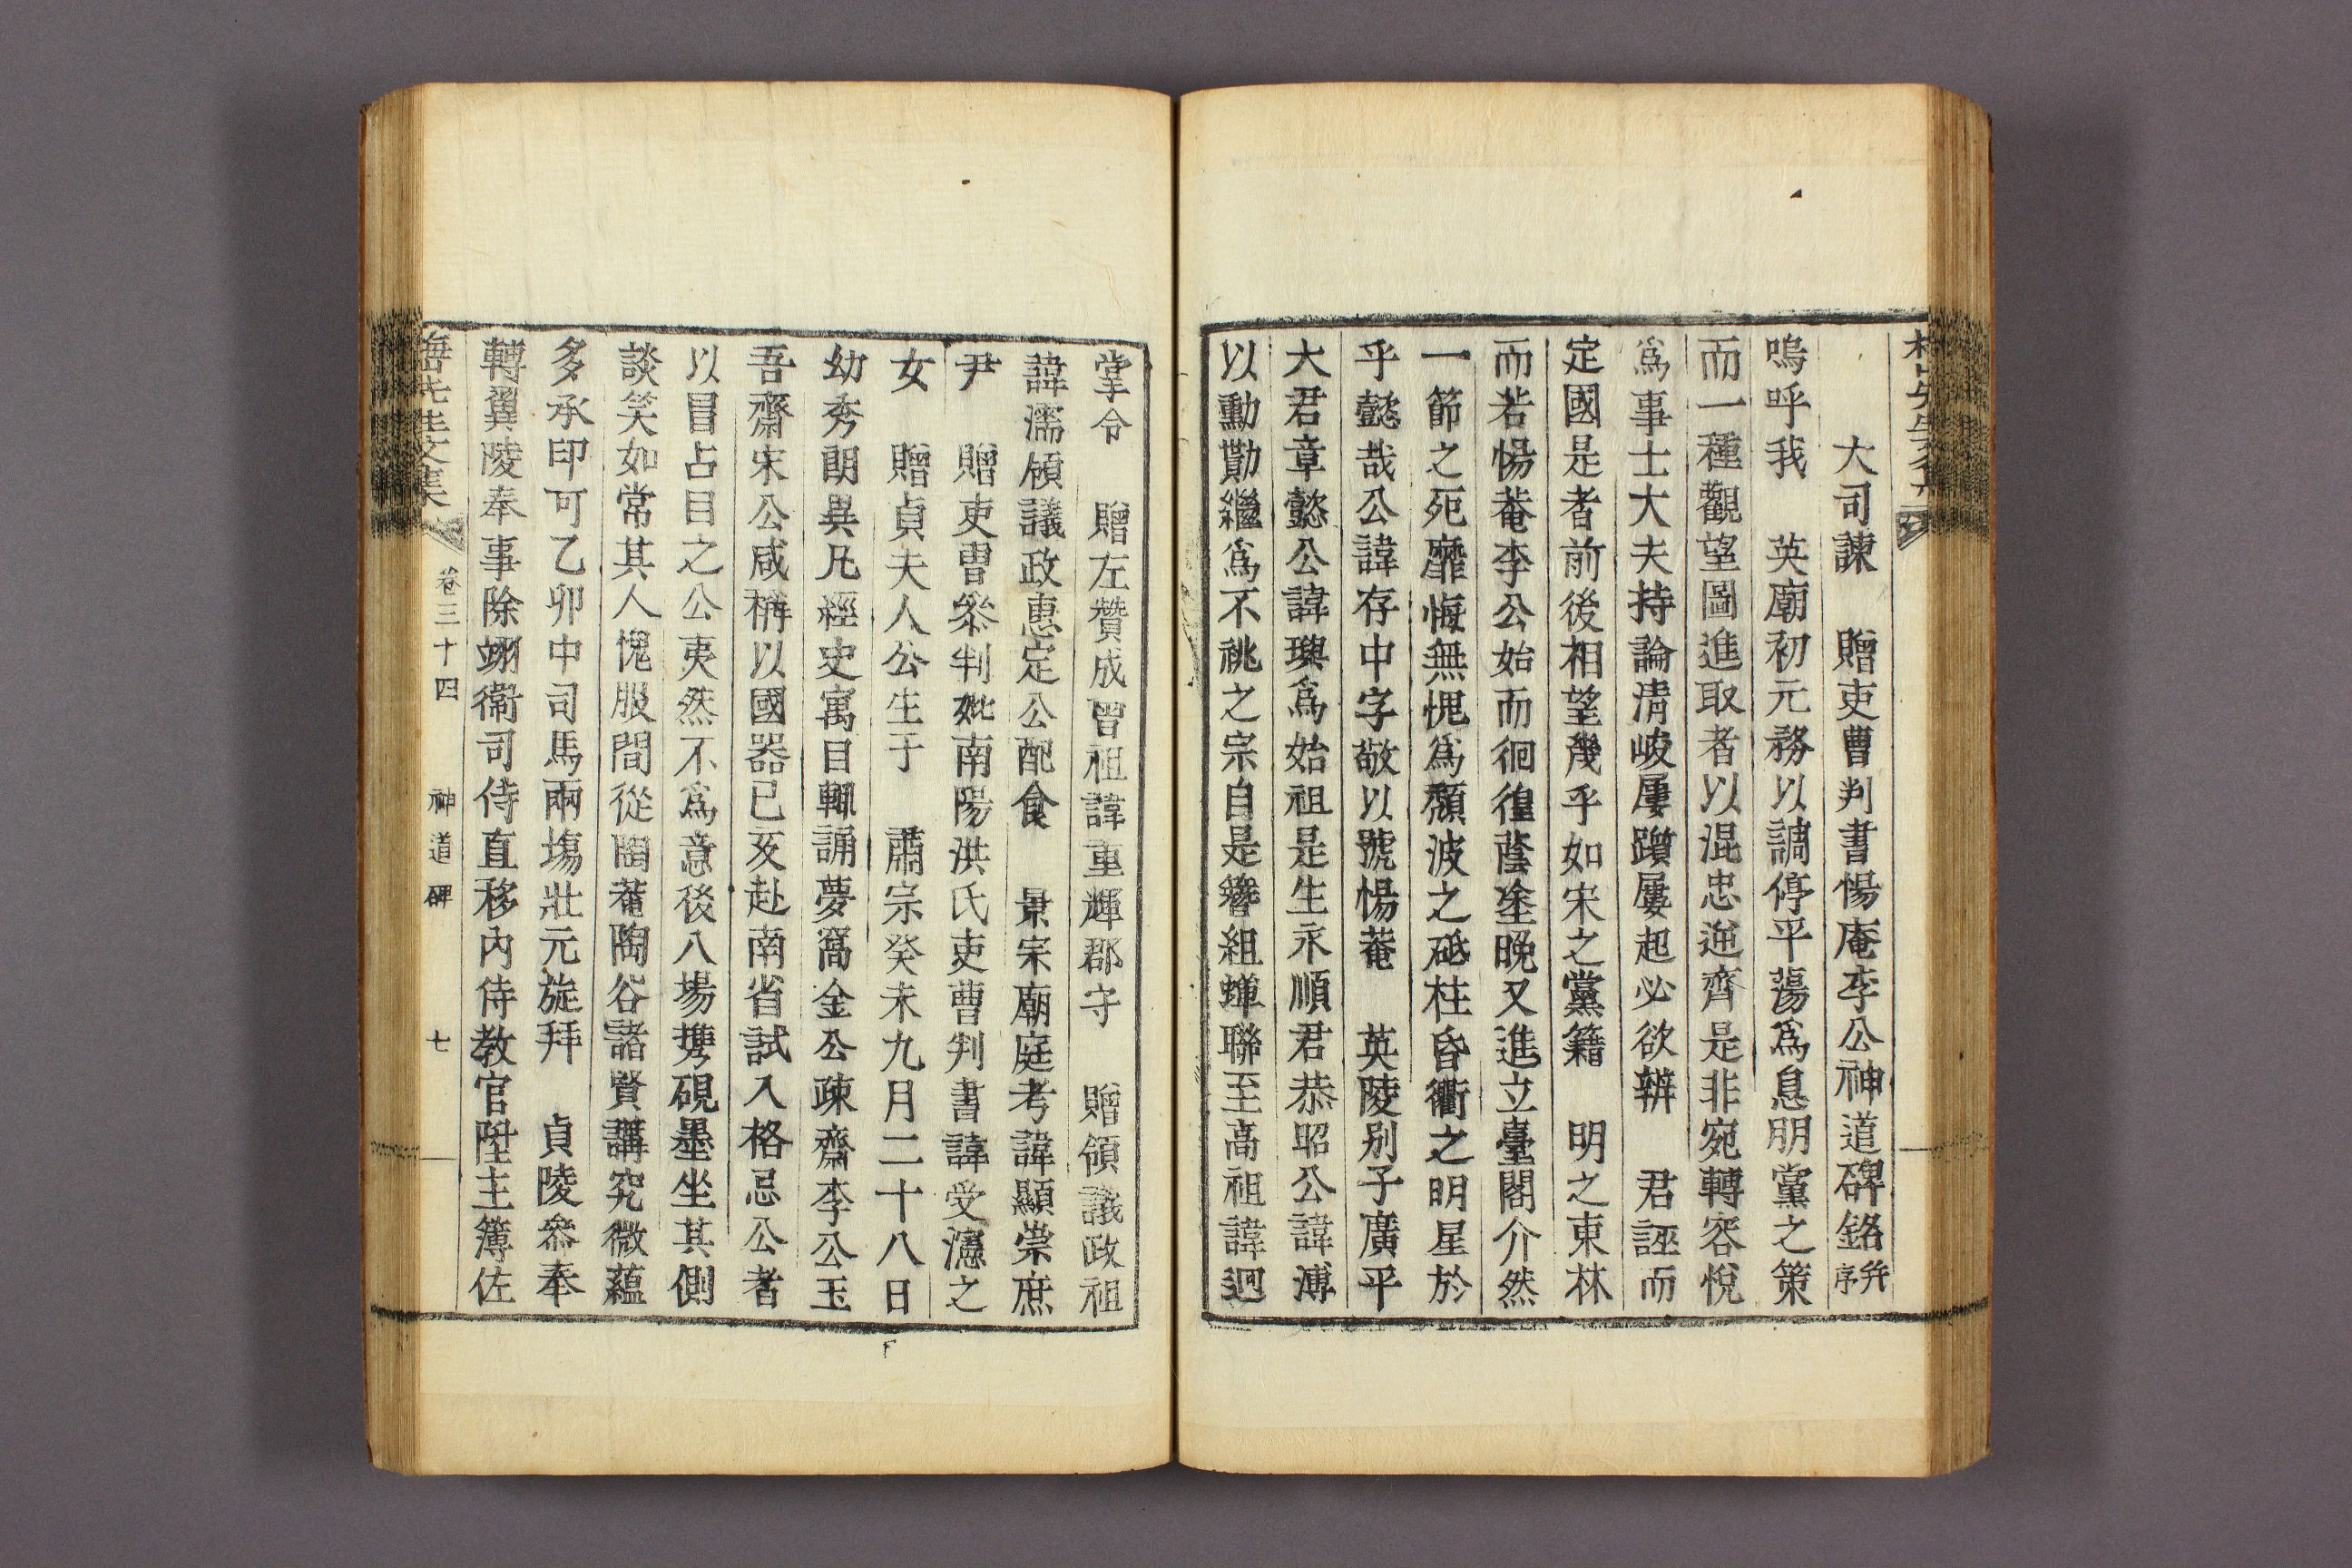 大司諫 贈吏曹判書惕庵李公神道碑銘 幷序
嗚呼我 英廟初元務以調停平蕩爲息朋黨之策
而一種觀望圖進取者以混忠逆齊是非宛轉容悅
爲事士大夫持論淸峻屢躓屢起必欲辨 君誣而
定國是者前後相望幾乎如宋之黨籍 明之東林
而若惕菴李公始而徊徨蔭塗晩又進立臺閣介然
一節之死靡悔無愧爲頹波之砥柱昏衢之明星於
乎懿哉公諱存中字敬以號惕菴 英陵別子廣平
大君章懿公諱璵爲始祖是生永順君恭昭公諱溥
以勳勩繼爲不祧之宗自是簪組蟬聯至高祖諱迥
掌令 贈左贊成曾祖諱重輝郡守 贈領議政祖
諱濡領議政惠定公配食 景宗廟庭考諱顯崇庶
尹 贈吏曹參判妣南陽洪氏吏曹判書諱受瀗之
女 贈貞夫人公生于 肅宗癸未九月二十八日
幼秀朗異凡經史寓目輒誦夢窩金公疎齋李公玉
吾齋宋公咸稱以國器己亥赴南省試入格忌公者
以冒占目之公夷然不爲意後入場携硯墨坐其側
談笑如常其人愧服間從陶菴陶谷諸賢講究微蘊
多承印可乙卯中司馬兩塲壯元旋拜 貞陵參奉
轉翼陵奉事除翊衞司侍直移內侍敎官陞主簿佐
卷三十四 神道碑 七